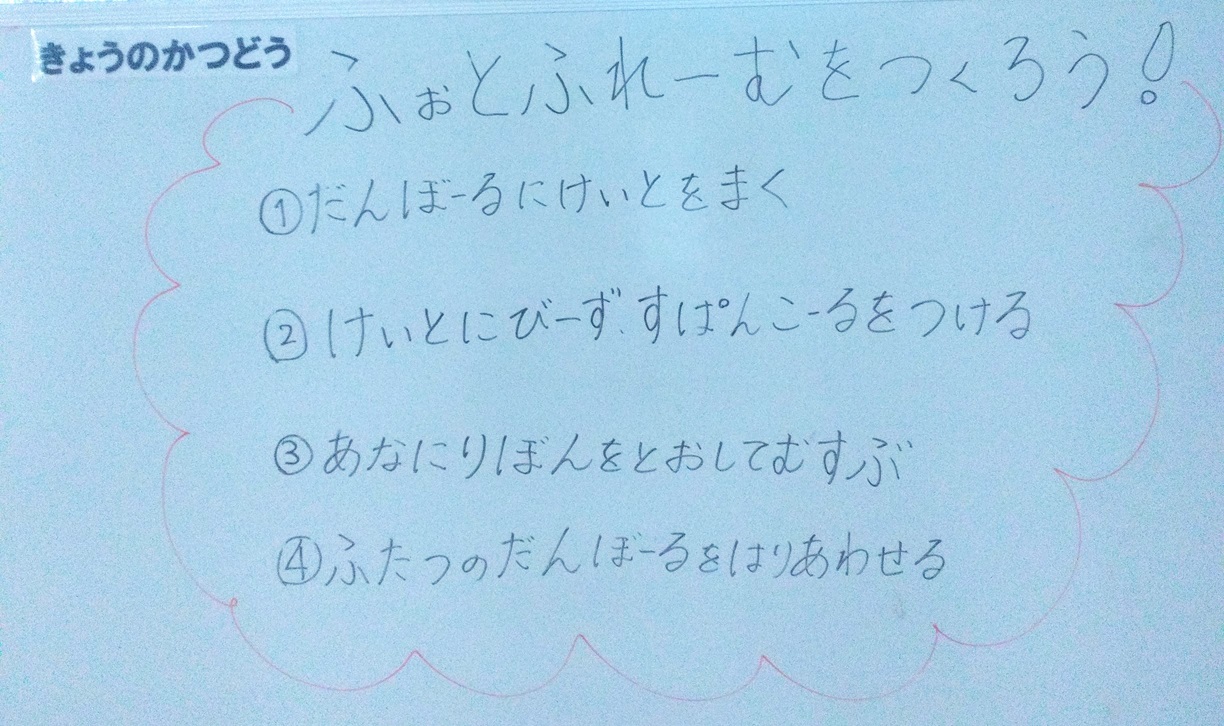 きょうのかつどう ふぉとふれーむをつくろう!
①だんぼーるにけいとをまく
②けいとにびーず、すぱんこーるをつける
③あなにりぼんをとおしてむすぶ
④ふたつのだんぼーるをはりあわせる